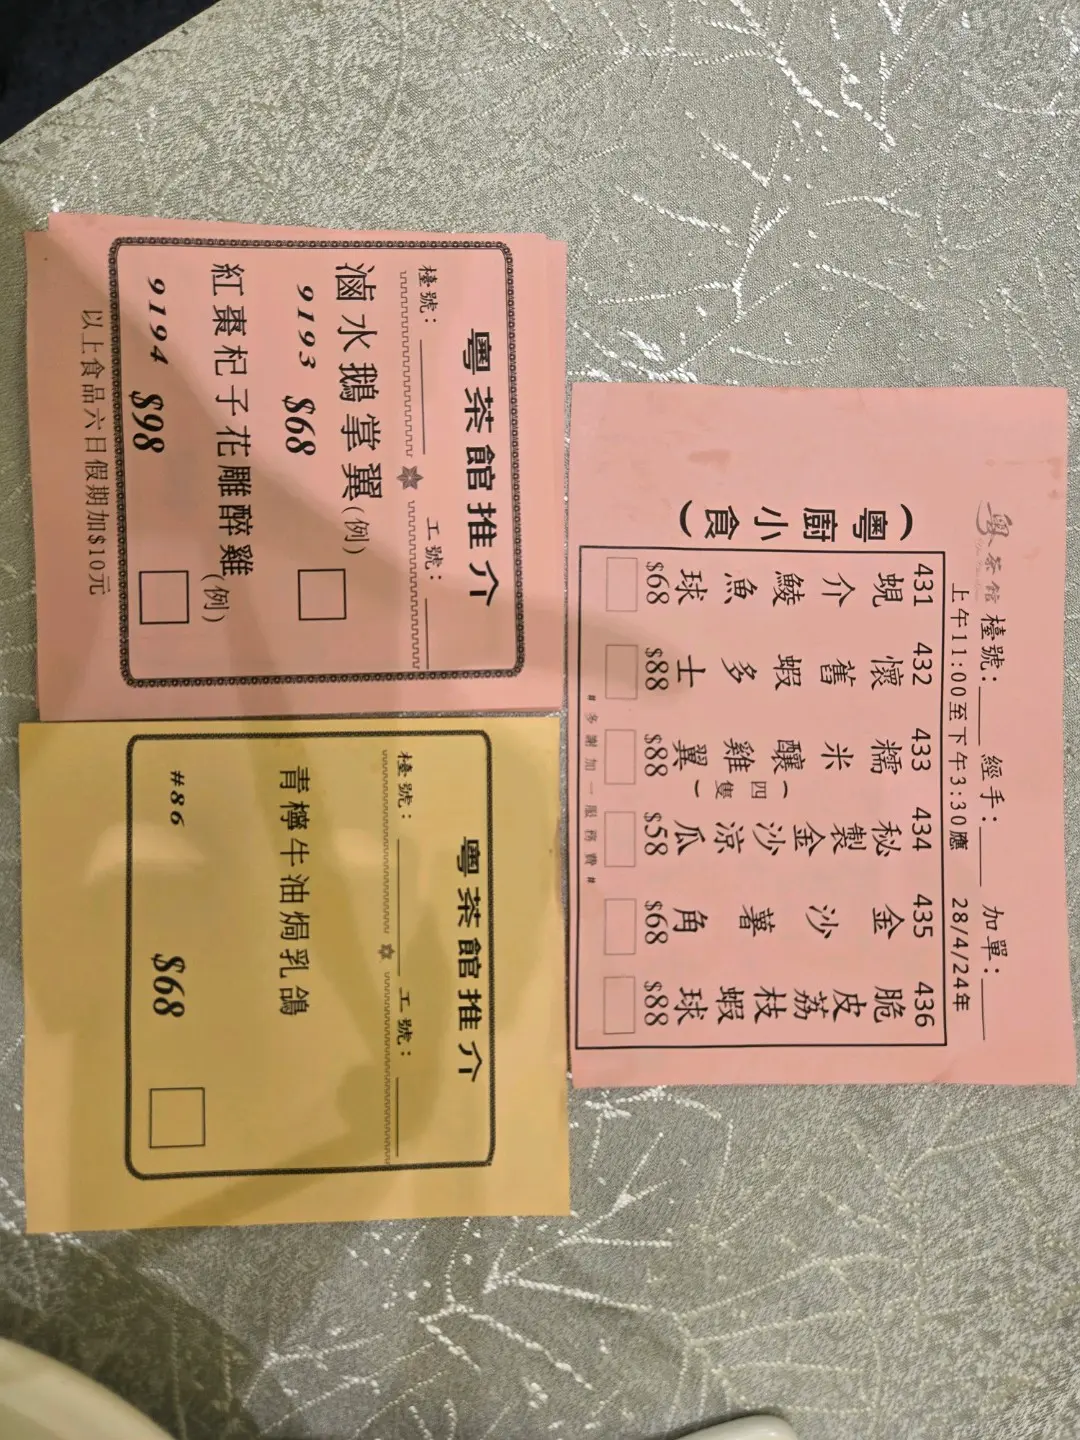 粵茶館推介
檯號：
工號：
滷水鵝掌翼(例)
9193 $68
紅棗杞子花雕醉雞(例)
9194 $98
以上食品六日假期加$10元
粵茶館推介
檯號：
工號：
青檸牛油焗乳鴿
#86 $68
粵茶館 檯號： 經手： 加單：
上午11:00至下午3:30應 28/4/24年
(粵廚小食)
431 蜆介鯪魚球 $68
432 懷舊蝦多士 $88
433 糯米釀雞翼(四隻) $88
434 秘製金沙涼瓜 $58
435 金沙薯角 $68
436 脆皮荔枝蝦球 $88
#多謝加一服務費#